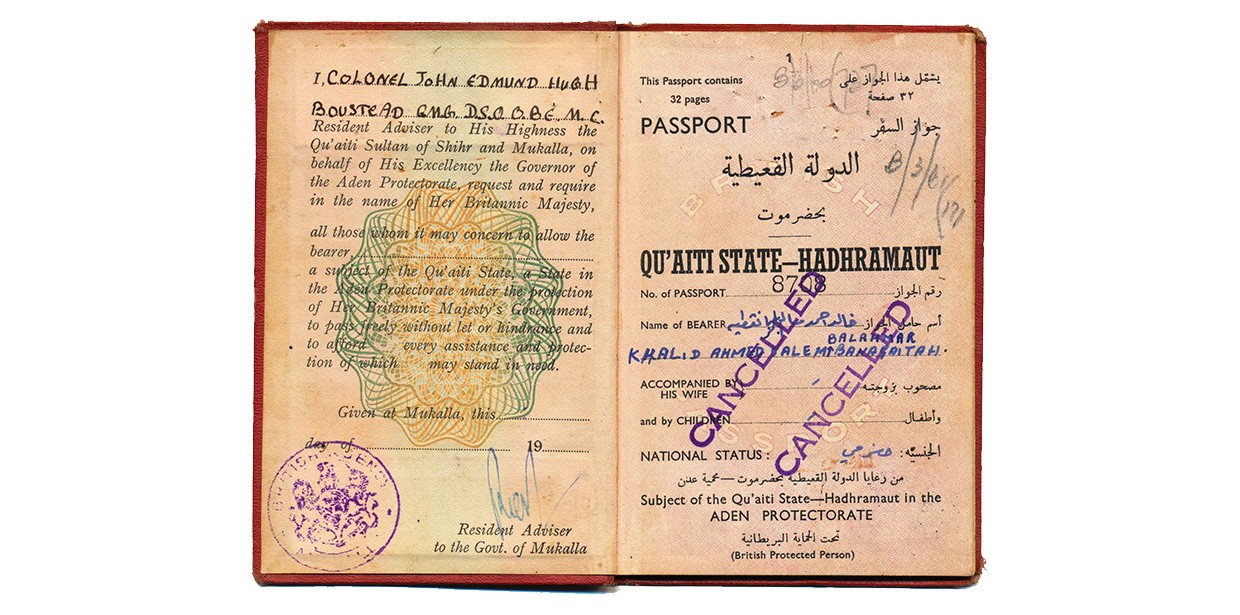 I, COLONEL JOHN EDMUND HUGH
BOUSTEAD CMG. D.S.O O.B.E. M.C.
Resident Adviser to His Highness the
Qu'aiti Sultan of Shihr and Mukalla, on
behalf of His Excellency the Governor of
the Aden Protectorate, request and require
in the name of Her Britannic Majesty,
all those whom it may concern to allow the
bearer
a subject of the Qu'aiti State, a State in
the Aden Protectorate under the protection
of Her Britannic Majesty's Government,
to pass freely without let or hindrance and
to afford every assistance and protec-
tion of which may stand in need.
Given at Mukalla, this
day of 19
BRITISH AGENCY
Resident Adviser
to the Govt. of Mukalla
1
This Passport contains يشتمل هذا الجواز على
32 pages ٣٢ صفحة
PASSPORT جواز السفر
الدولة القعيطية
BRITISH
بحضرموت
QU'AITI STATE—HADHRAMAUT
No. of PASSPORT رقم الجواز
Name of BEARER خالد احمد أسم حامل الجواز
BALAAMAR
KHALID AHMED SALEM
ACCOMPANIED BY مصحوب بزوجته
HIS WIFE
and by CHILDREN وأطفال
PASSPORT
NATIONAL STATUS: حضرمي الجنسيّه:
CANCELLED
CANCELLED
من رعايا الدولة القعيطية بحضرموت — محمية عدن
Subject of the Qu'aiti State—Hadhramaut in the
ADEN PROTECTORATE
تحت الحماية البريطانية
(British Protected Person)